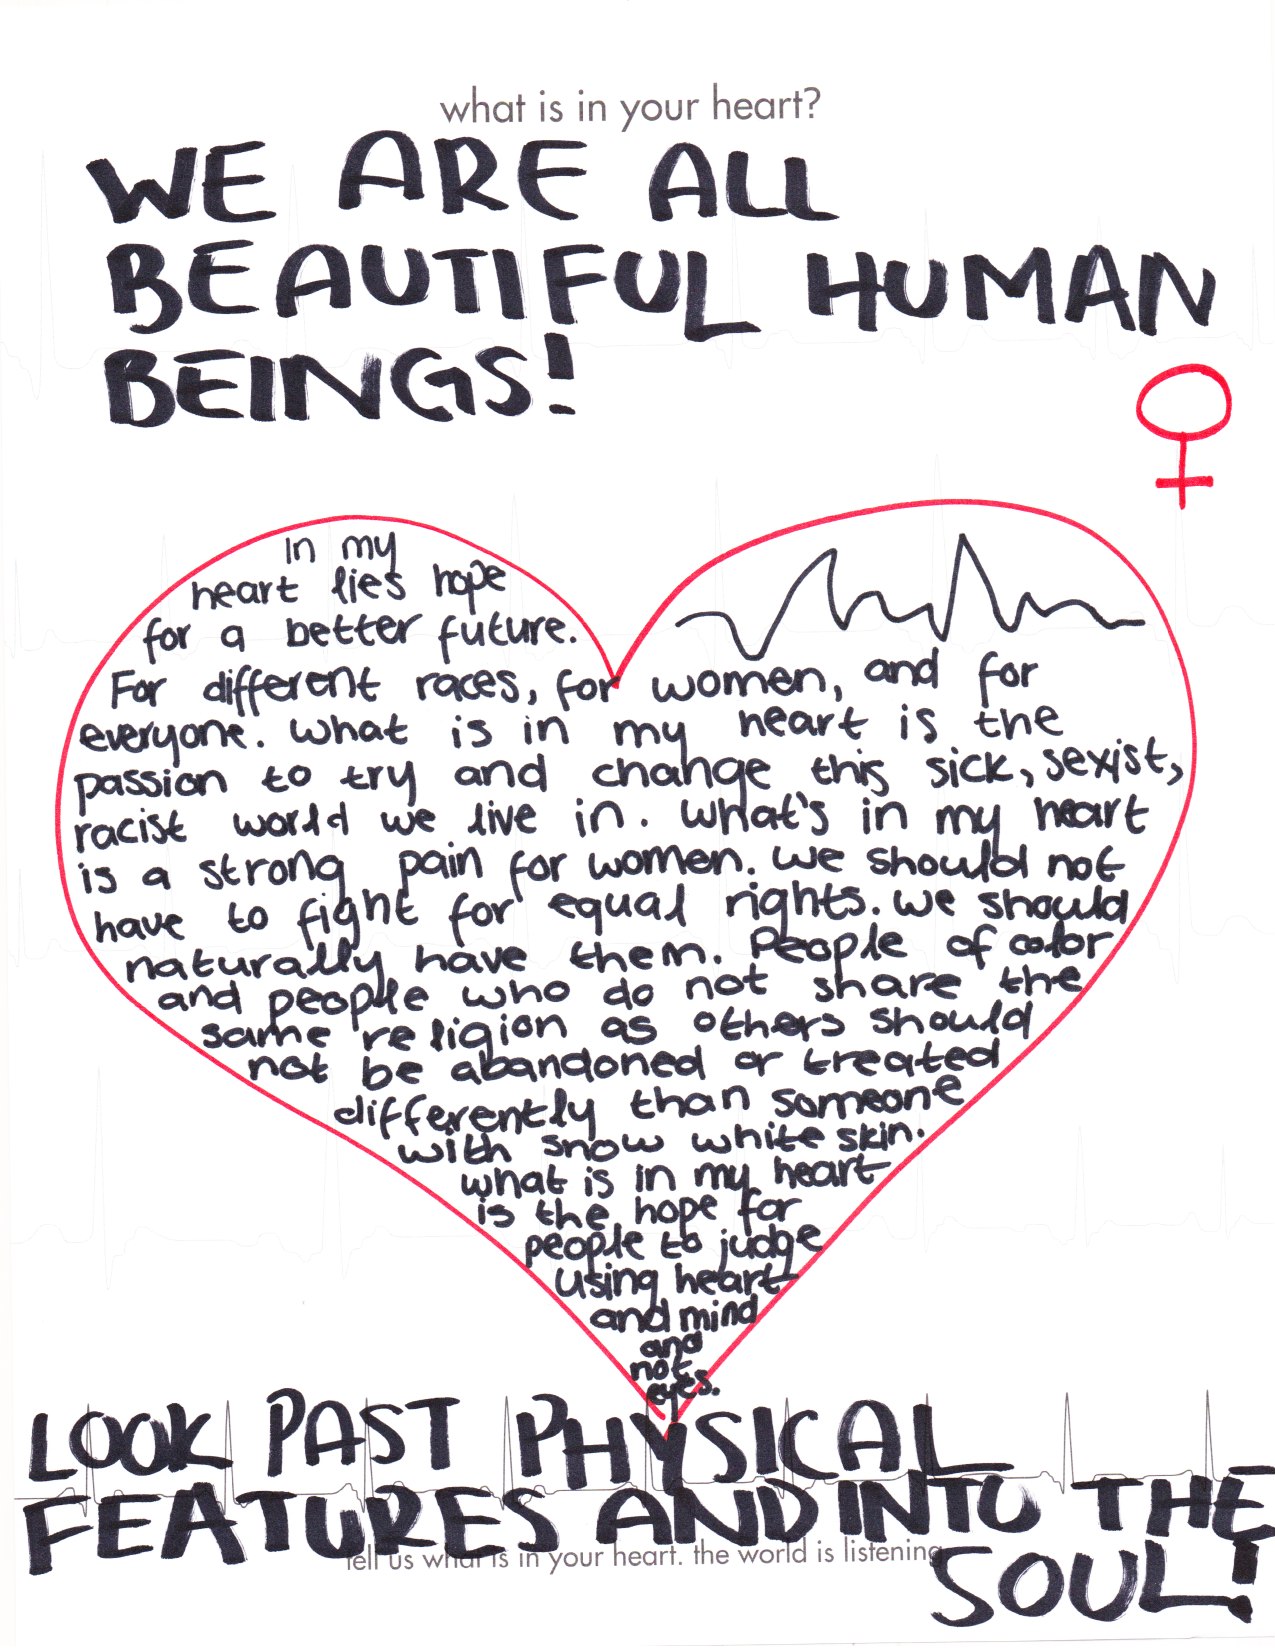 what is in your heart?
WE ARE ALL
BEAUTIFUL HUMAN
BEINGS!
in my
heart lies hope
for a better future.
For different races, for women, and for
everyone. what is in my heart is the
passion to try and change this sick, sexist,
racist world we live in. what's in my heart
is a strong pain for women. we should not
have to fight for equal rights. we should
naturally have them. People of color
and people who do not share the
same religion as others should
not be abandoned or treated
differently than someone
with snow white skin.
what is in my heart
is the hope for
people to judge
using heart
and mind
and
not
eyes.
LOOK PAST PHYSICAL
FEATURES AND INTO THE
SOUL!
tell us what is in your heart. the world is listening